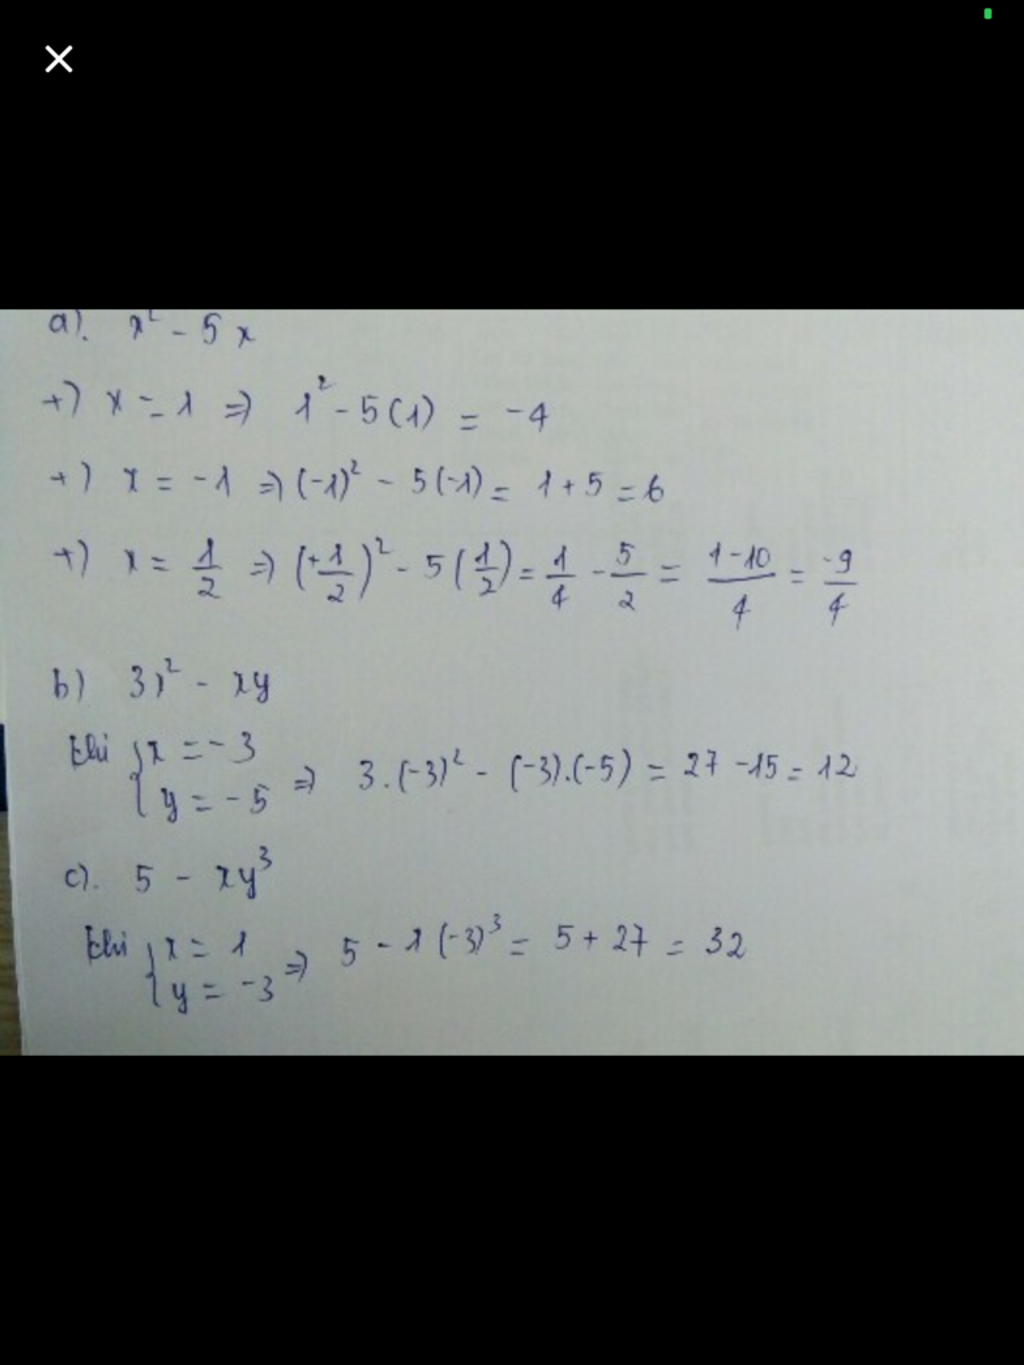 a). x² - 5x
+) x = 1 => 1² - 5(1) = -4
+) x = -1 => (-1)² - 5(-1) = 1 + 5 = 6
+) x = 1/2 => (+1/2)² - 5(1/2) = 1/4 - 5/2 = 1-10/4 = -9/4
b) 3x² - xy
khi { x = -3
y = -5 => 3.(-3)² - (-3).(-5) = 27 - 15 = 12
c). 5 - xy³
khi { x = 1
y = -3 => 5 - 1(-3)³ = 5 + 27 = 32